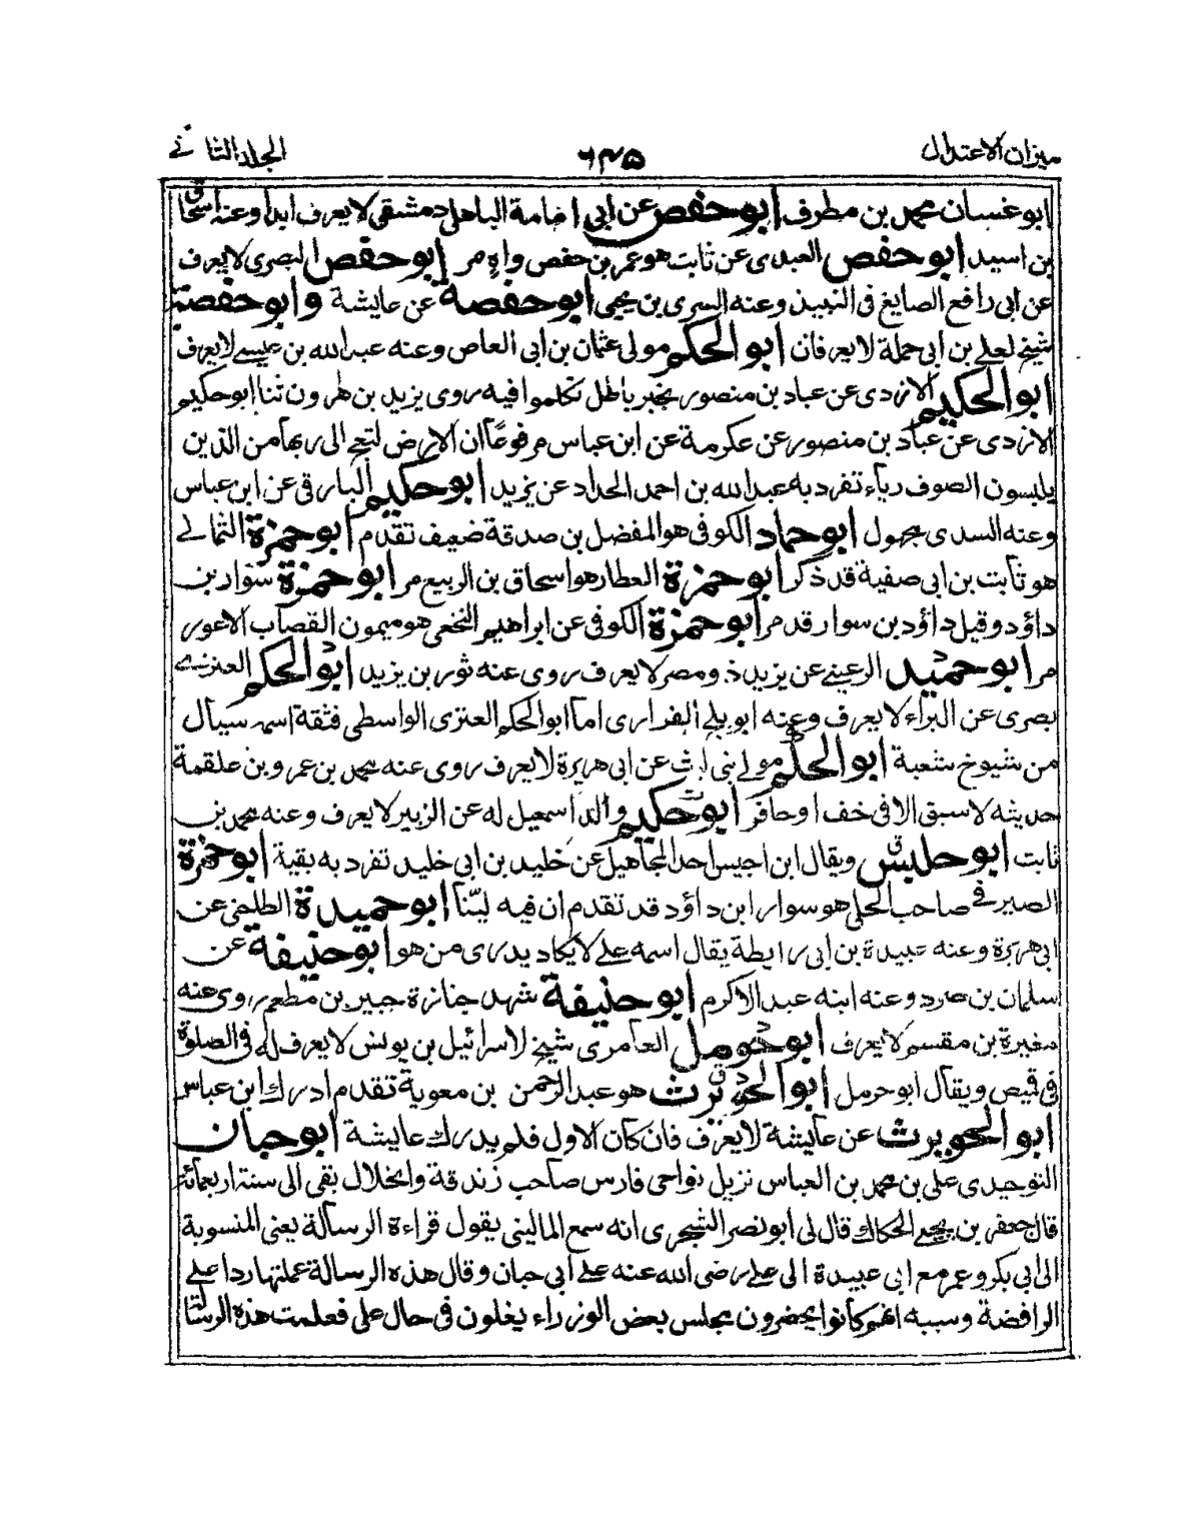 ميزان الاعتدال ٦٤٥ المجلد الثاني
ابو غسان محمد بن مطرف ابو حفص عن ابي امامة الباهلي دمشقي لا يعرف ابدا وعنه اسحاق
بن اسيد ابو حفص العبدى عن ثابت هو عمر بن حفص واهٍ مر ابو حفص البصرى لا يعرف
عن ابى رافع الصايغ فى النبيذ وعنه السرى بن يحيى ابو حفصة عن عايشة وابو حفصة
شيخ لعلى بن ابى حملة لا يعرفان ابو الحكم مولى عثمان بن ابى العاص وعنه عبد الله بن عيسى لا يعرف
ابو الحكيم الازدى عن عباد بن منصور بخبر باطل تكلموا فيه روى يزيد بن هرون ثنا ابو حكيم
الازدى عن عباد بن منصور عن عكرمة عن ابن عباس مرفوعًا ان الارض لتعج الى ربها من الذين
يلبسون الصوف رياء تفرد به عبد الله بن احمد الحداد عن يزيد ابو حكيم البارقى عن ابن عباس
وعنه السدى مجهول ابو حماد الكوفى هو المفضل بن صدقة ضعيف تقدم ابو حمزة الثمالى
هو ثابت بن ابى صفية قد ذكر ابو حمزة العطار هو اسحاق بن الربيع مر ابو حمزة سوار بن
داؤد وقيل داؤد بن سوار قد مر ابو حمزة الكوفى عن ابراهيم النخعى هو ميمون القصاب الاعور
مر ابو حميد الرعينى عن يزيد ذو مصر لا يعرف روى عنه ثور بن يزيد ابو الحكم العنزى
بصرى عن البراء لا يعرف وعنه ابو بلج الفزارى اما ابو الحكم العنزى الواسطى فثقة اسمه سيار
من شيوخ شعبة ابو الحكم مولى بنى ليث عن ابى هريرة لا يعرف روى عنه محمد بن عمرو بن علقمة
حديثه لا سبق الا فى خف او حافر ابو حكيم والد اسمعيل له عن الزبير لا يعرف وعنه محمد بن
ثابت ابو حلبس ويقال ابن احبس احد المجاهيل عن خليد بن ابى خليد تفرد به بقية ابو حمزة
الصيرفى صاحب الحلى هو سوار ابن داؤد قد تقدم ان فيه لينًا ابو حميدة الطلحى عن
ابى هريرة وعنه عبيدة بن ابى رايطة يقال اسمه على لا يكاد يدرى من هو ابو حنيفة عن
سلمان بن صرد وعنه ابنه عبد الاكرم ابو حنيفة شهد جنازة جبير بن مطعم روى عنه
مغيرة بن مقسم لا يعرف ابو حومل العامرى شيخ لاسرائيل بن يونس لا يعرف له فى الصلوة
فى قميص ويقال ابو حرمل ابو الحويرث هو عبد الرحمن بن معوية تقدم ادرك ابن عباس
ابو الحويرث عن عايشة لا يعرف فان كان الاول فلم يدرك عايشة ابو حيان
التوحيدى على بن محمد بن العباس نزيل نواحى فارس صاحب زندقة وانحلال بقى الى سنة اربعمائة
قال جعفر بن يحيى الحكاك قال لى ابو نصر الشجرى انه سمع المالينى يقول قراءة الرسالة يعنى المنسوبة
الى ابى بكر وعمر مع ابى عبيدة الى على رضى الله عنه على ابى حيان وقال هذه الرسالة عملتها ردا على
الرافضة وسببه انهم كانوا يحضرون مجلس بعض الوزراء يغلون فى حال على فعلمت هذه الرسالة